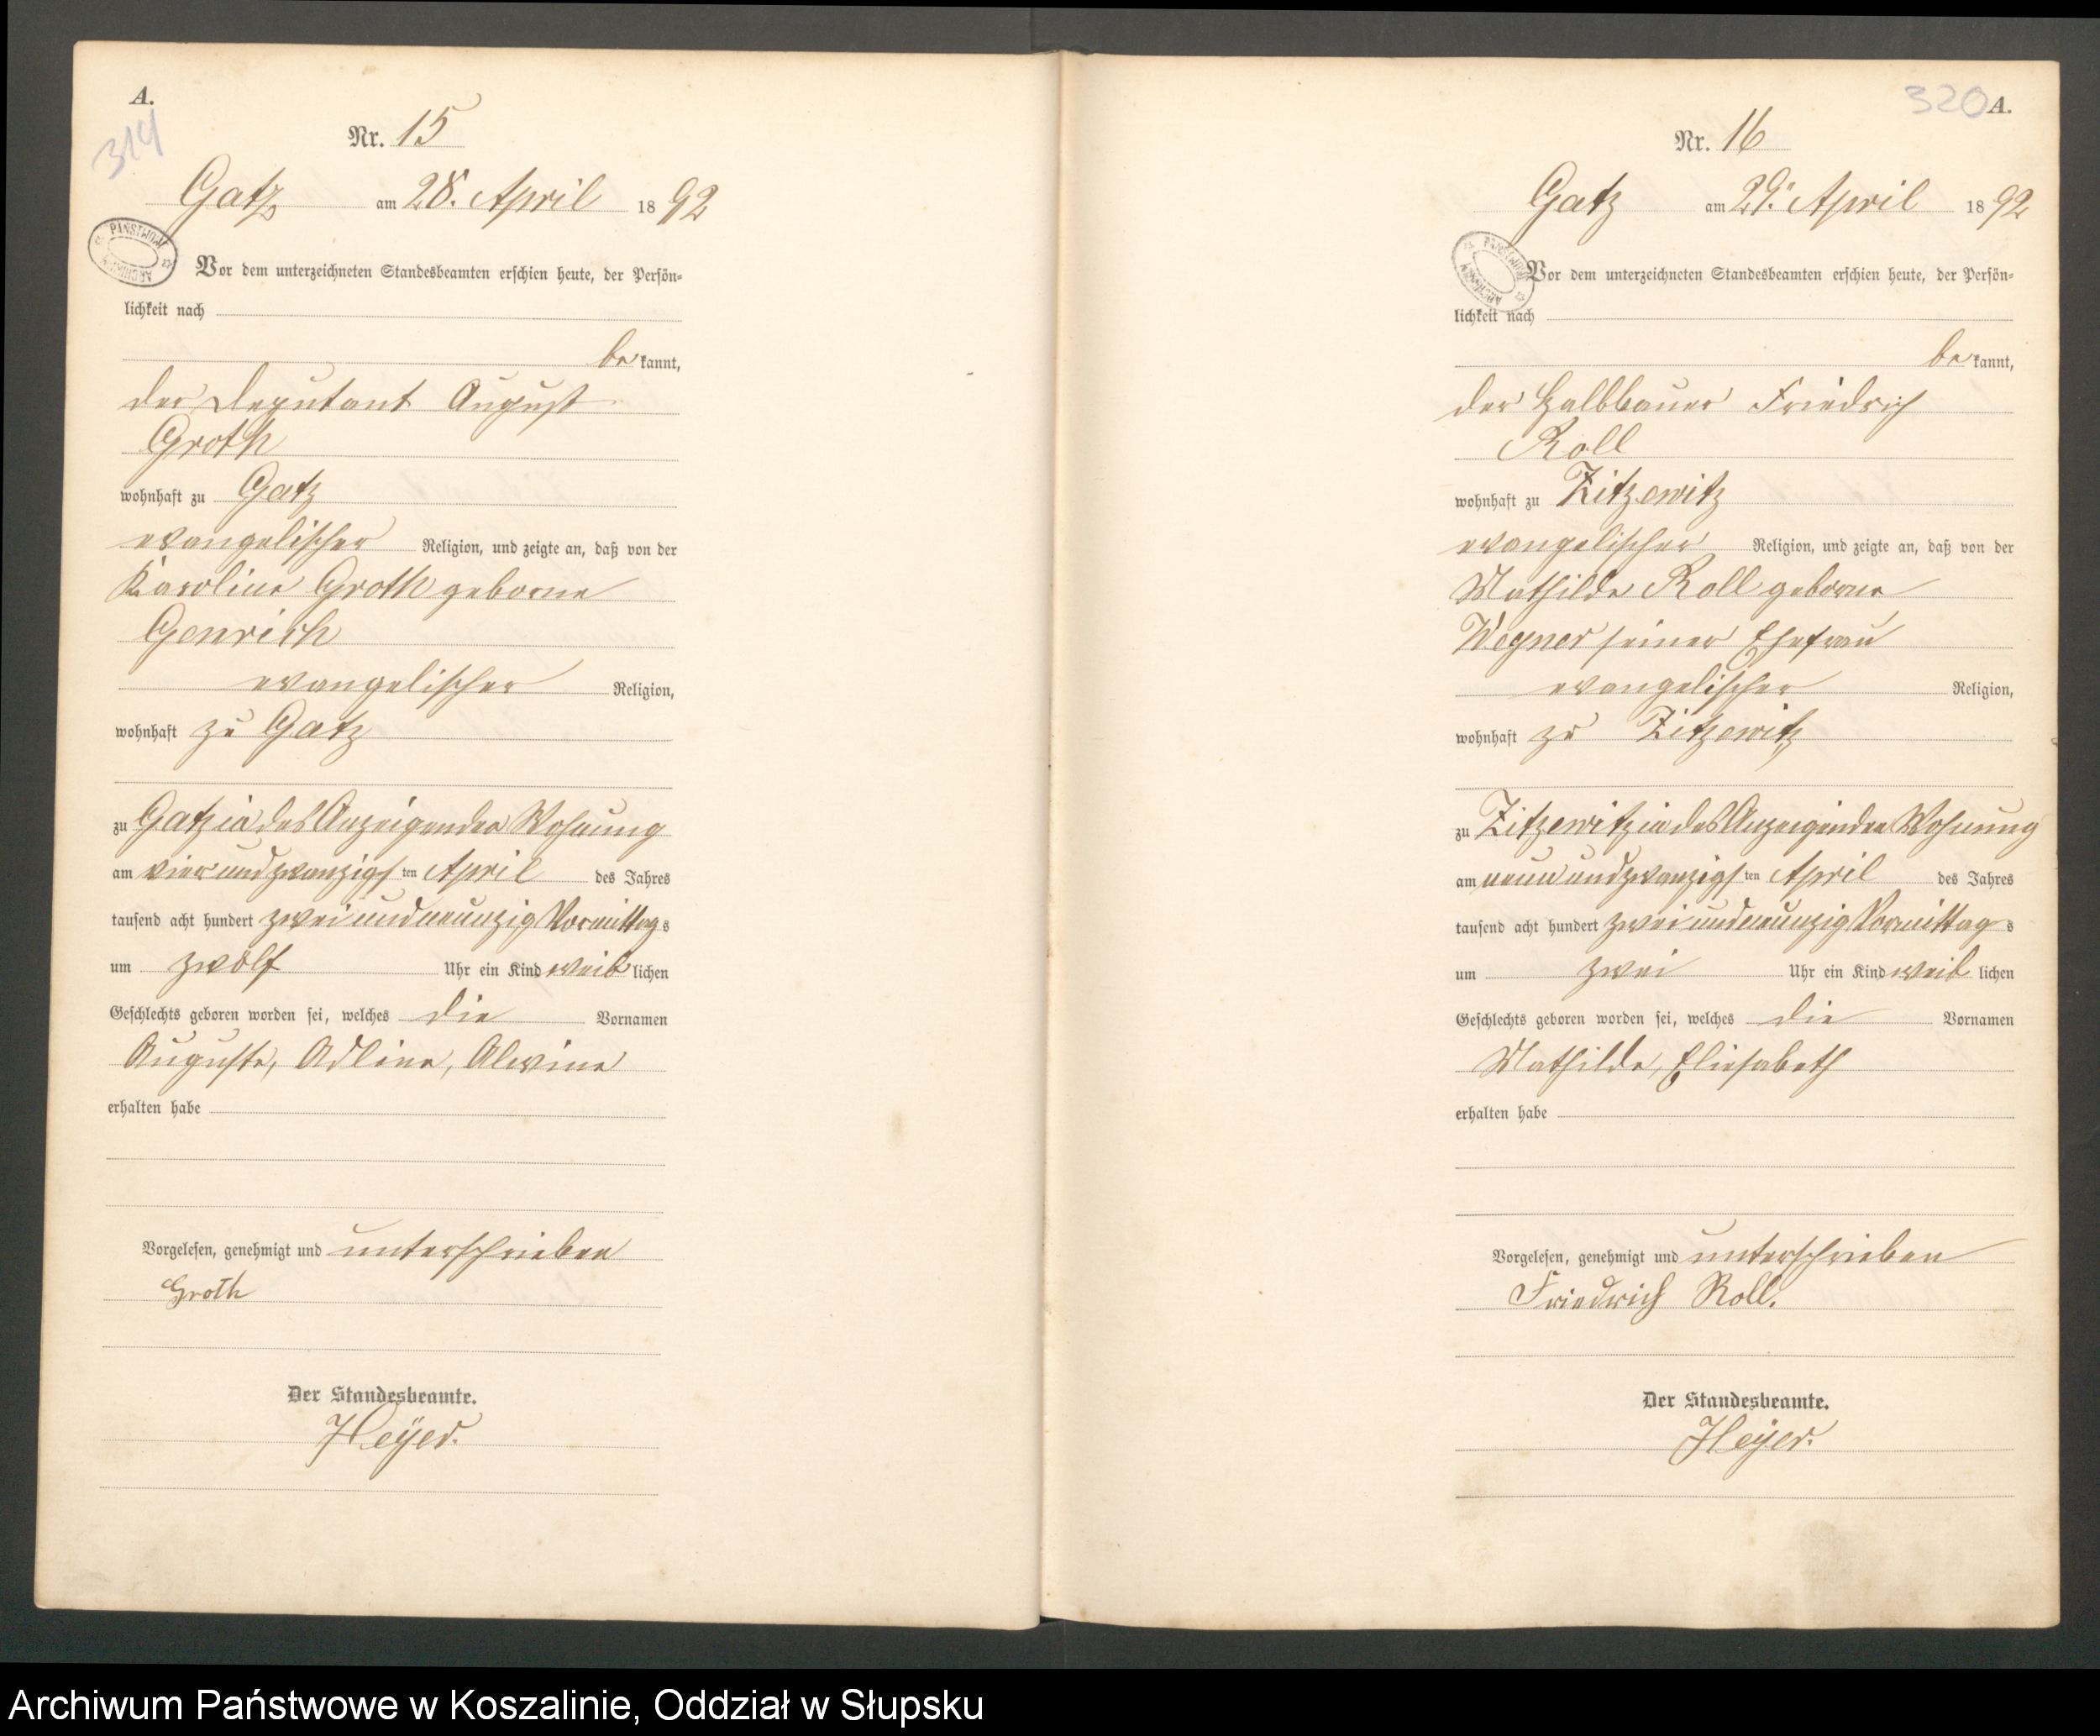 A.
314
Nr. 15
Gatz am 28. April 1892
PAŃSTWOWE ARCHIWUM
Vor dem unterzeichneten Standesbeamten erschien heute, der Persön-
lichkeit nach
be kannt,
der Deputant August
Groth
wohnhaft zu Gatz
evangelischer Religion, und zeigte an, daß von der
Karoline Groth geborne
Genrich
evangelischer Religion,
wohnhaft zu Gatz
zu Gatz in des Anzeigenden Wohnung
am vier und zwanzigs ten April des Jahres
tausend acht hundert zwei und neunzig Vormittag s
um zwölf Uhr ein Kind weib lichen
Geschlechts geboren worden sei, welches die Vornamen
Auguste, Adline, Alwine
erhalten habe
Vorgelesen, genehmigt und unterschrieben
Groth
Der Standesbeamte.
Heÿer.
320 A.
Nr. 16
Gatz am 29. April 1892
PAŃSTWOWE ARCHIWUM
Vor dem unterzeichneten Standesbeamten erschien heute, der Persön-
lichkeit nach
be kannt,
der Halbbauer Friedrich
Roll
wohnhaft zu Zitzewitz
evangelischer Religion, und zeigte an, daß von der
Mathilde Roll geborne
Wegner seiner Ehefrau
evangelischer Religion,
wohnhaft zu Zitzewitz
zu Zitzewitz in des Anzeigenden Wohnung
am neun und zwanzigs ten April des Jahres
tausend acht hundert zwei und neunzig Vormittag s
um zwei Uhr ein Kind weib lichen
Geschlechts geboren worden sei, welches die Vornamen
Mathilde, Eliesabeth
erhalten habe
Vorgelesen, genehmigt und unterschrieben
Friedrich Roll.
Der Standesbeamte.
Heÿer.
Archiwum Państwowe w Koszalinie, Oddział w Słupsku